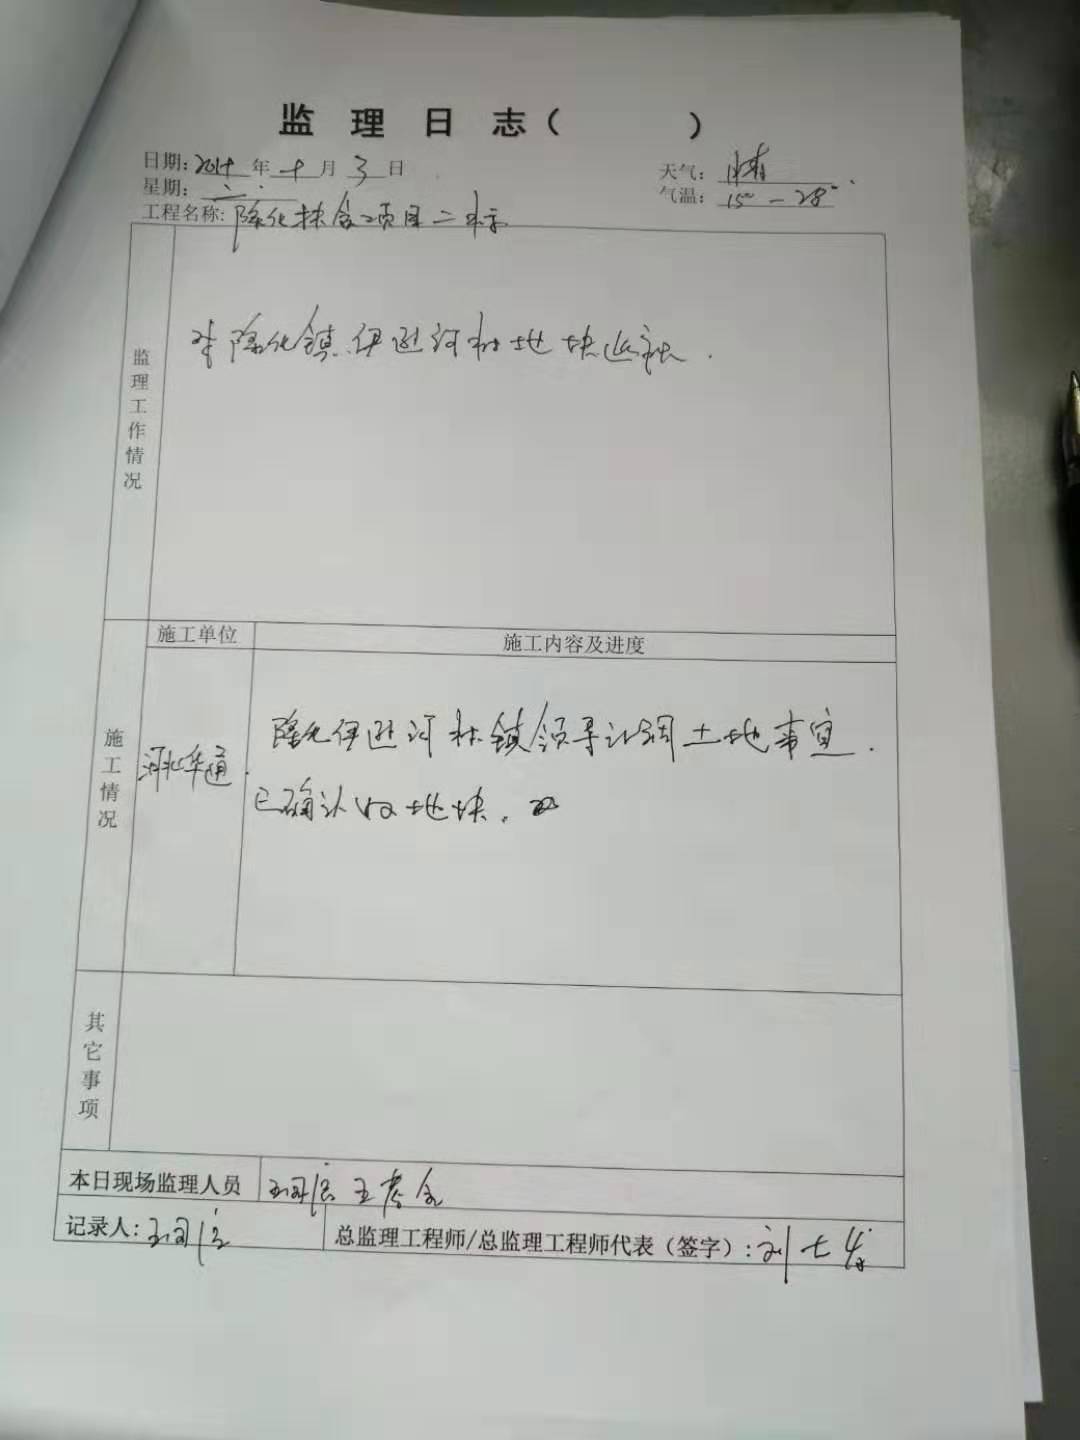 监理日志（ ）
日期: 年 十 月 3 日 天气: 晴
星期: 二 气温: 15° — 28°
工程名称: 隆化扶贫项目二标
监理工作情况
对隆化镇伊逊河村地块
施工情况
施工单位 施工内容及进度
河北华通
隆化伊逊河村镇领导协调土地事宜.
已确认 地块.
其它事项
本日现场监理人员 王
记录人:
总监理工程师/总监理工程师代表（签字）: 刘